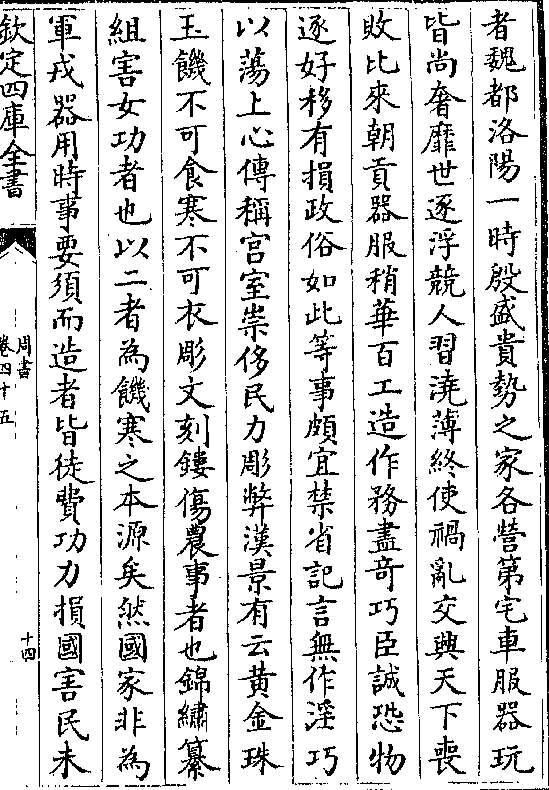 者魏都洛陽一時殷盛貴勢之家各營第宅車服器玩
皆尚奢靡世逐浮競人習澆薄終使禍亂交興天下喪
敗比來朝貢器服稍華百工造作務盡奇巧臣誠恐物
逐好移有損政俗如此等事頗宜禁省記言無作淫巧
以蕩上心傳稱宫室崇侈民力彫弊漢景有云黄金珠
玉饑不可食寒不可衣彫文刻鏤傷農事者也錦繡纂
組害女功者也以二者為饑寒之本源矣然國家非為
軍戎器用時事要須而造者皆徒費功力損國害民未
欽定四庫全書
周書
卷四十五
十四